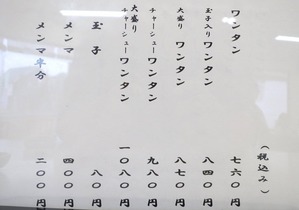 (税込み)
ワンタン 七六〇円
玉子入りワンタン 八四〇円
大盛りワンタン 八七〇円
チャーシューワンタン 九八〇円
大盛りチャーシューワンタン 一〇八〇円
玉子 八〇円
メンマ 四〇〇円
メンマ半分 二〇〇円